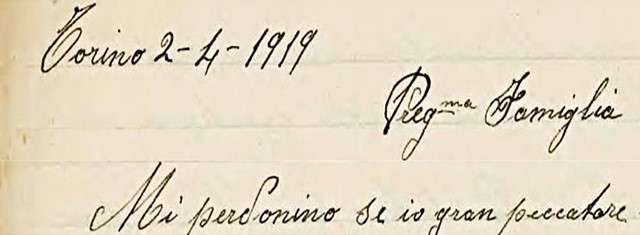 Torino 2-4-1919
Preg.ma Famiglia
Mi perdonino se io gran peccatore